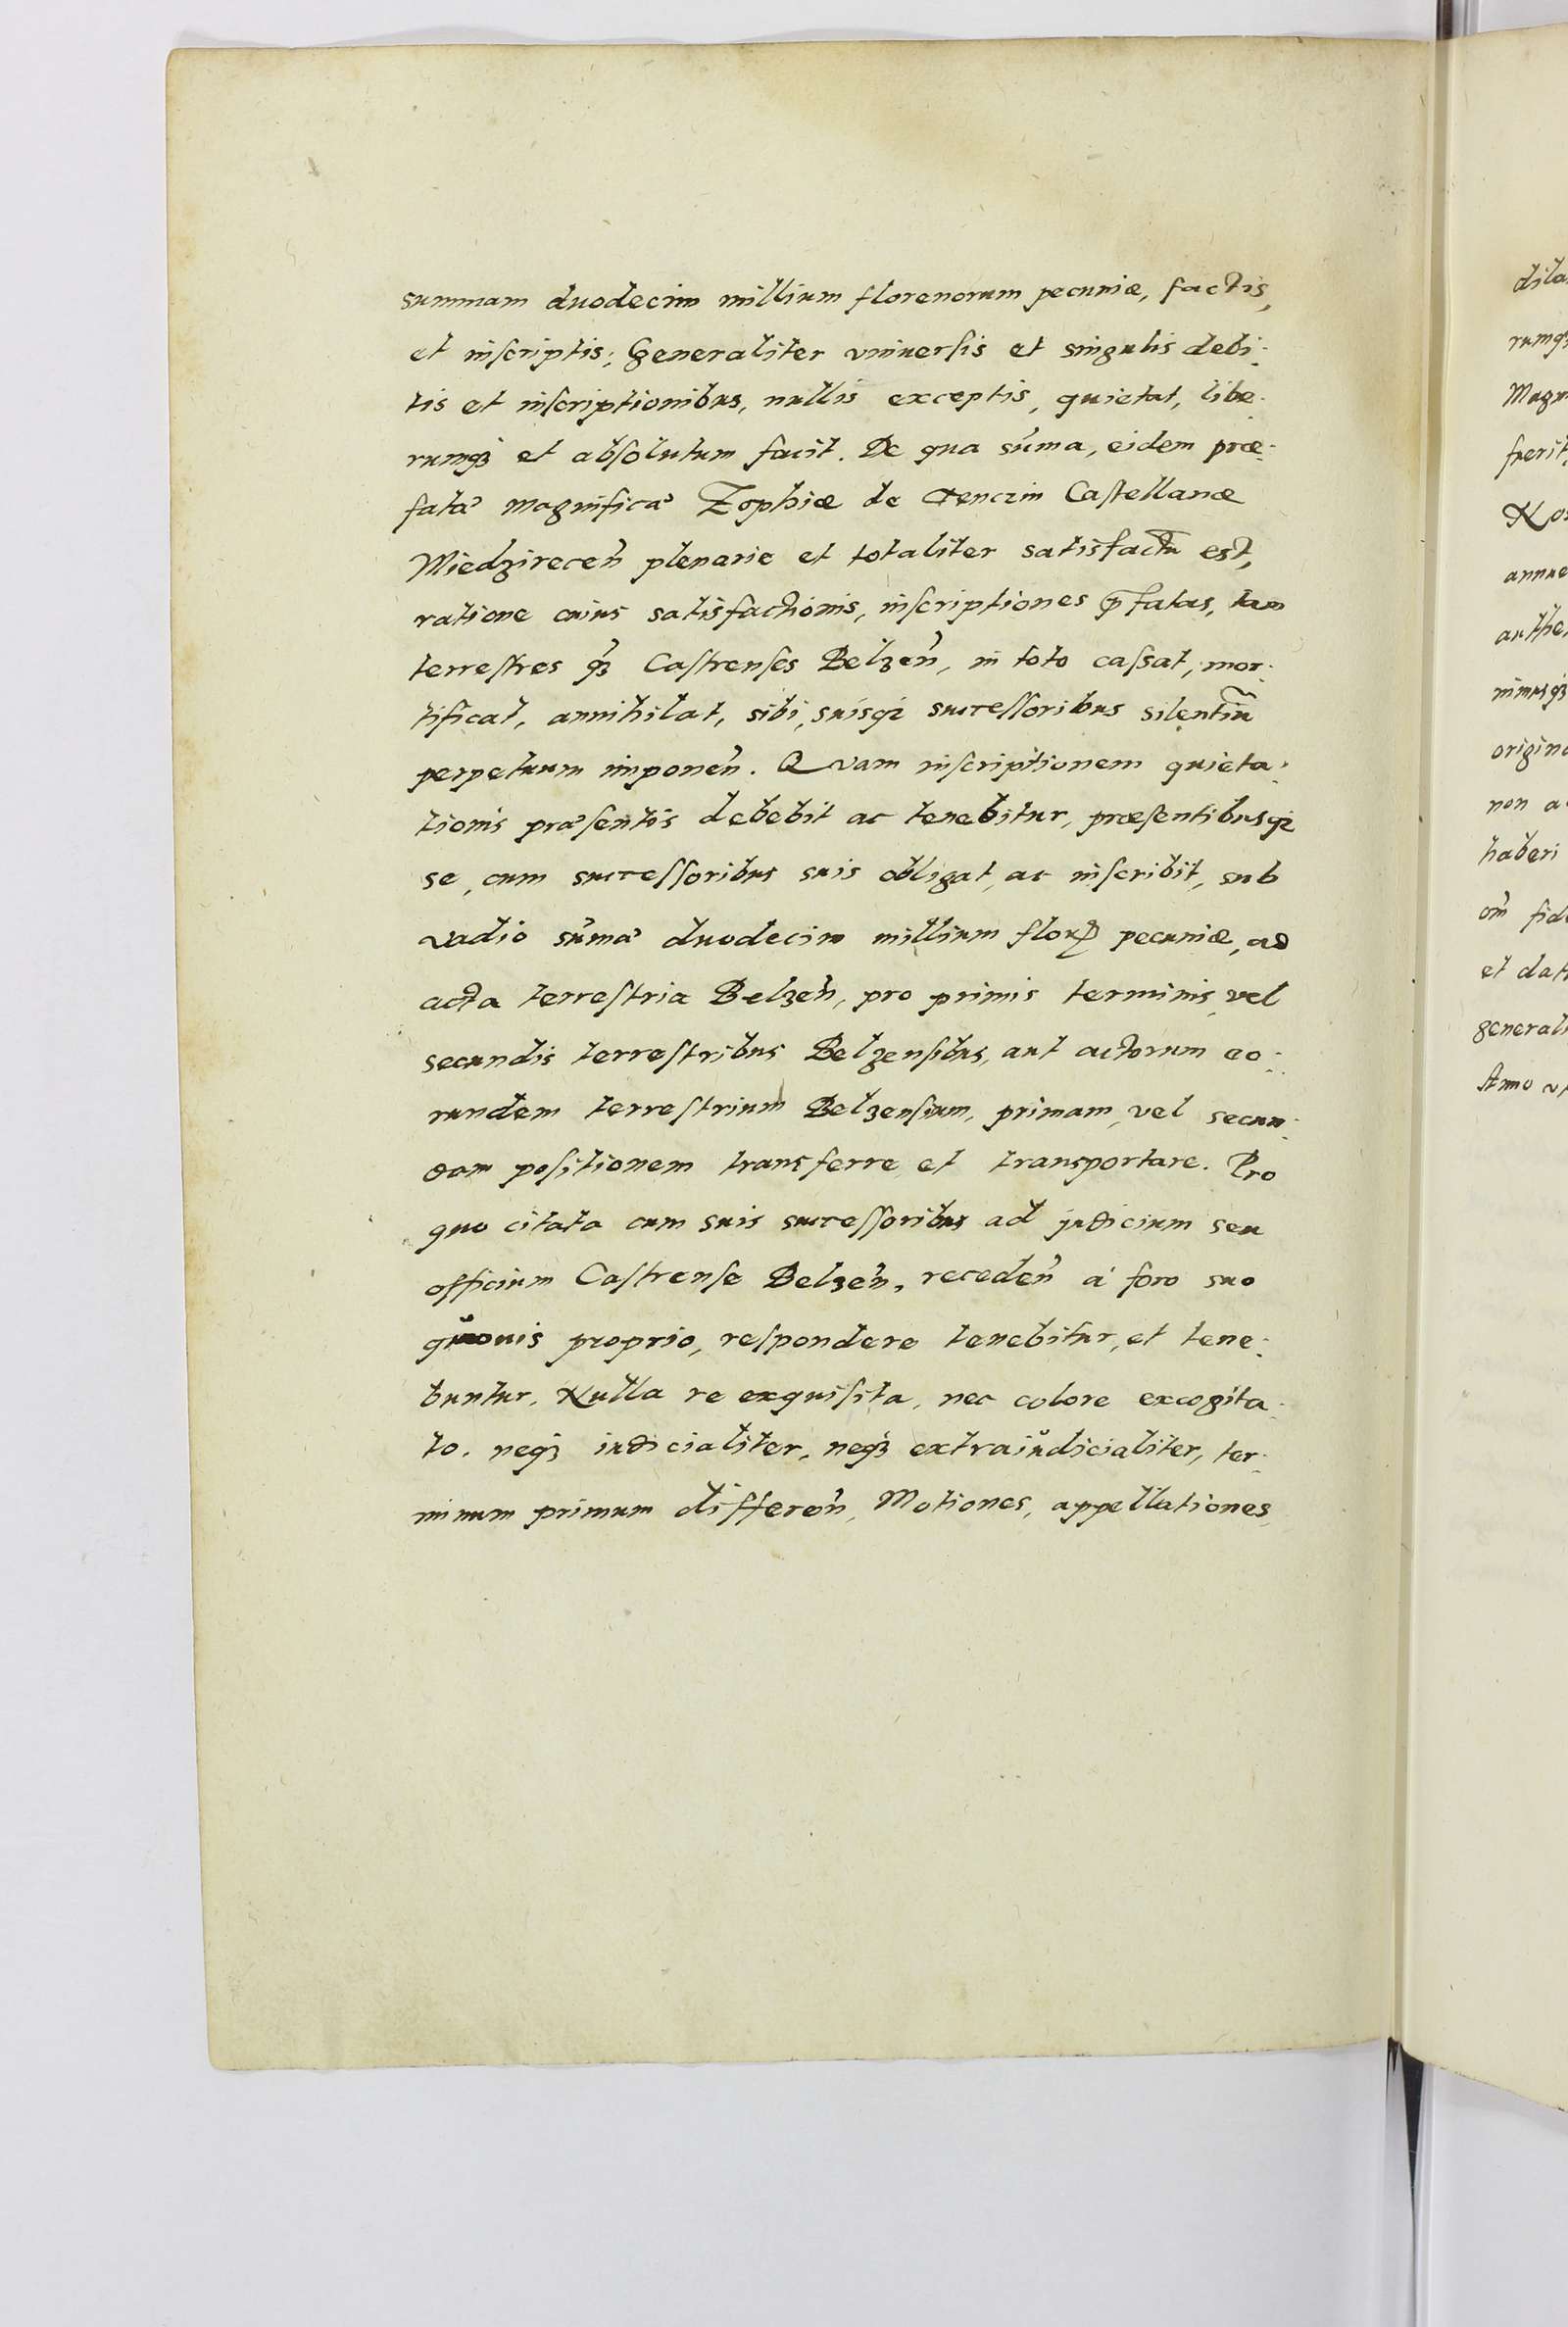 summam duodecim millium florenorum pecuniæ, factis,
et inſcriptis; Generaliter vniuerſis et singulis debi-
tis et inſcriptionibus, nullis exceptis, quietat, libe-
rumq₃ et abſolutum facit. De qua sum̃a, eidem præ-
fatæ magnificæ Zophiæ de Tenczin Caſtellanæ
Miedzirecen̄ plenarie et totaliter satisfactū est,
ratione cuius satisfactionis, inſcriptiones p̄fatas, tam
terreſtres q₃ Caſtrenſes Belzen̄, in toto caſsat, mor-
tificat, annihilat, sibi, suisq₃ succeſſoribus silentiū
perpetuum imponen̄. Quam inſcriptionem quieta-
tionis præſentis debebit ac tenebitur, præſentibusq₃
se, cum succeſſoribus suis obligat, ac inſcribit, sub
vadio sum̃æ duodecim millium floꝝ pecuniæ, ad
acta terreſtria Belzen̄, pro primis terminis, vel
secundis terreſtribus Belzenſibus, aut actorum eo-
rundem terreſtrium Belzenſium, primam, vel secun-
dam poſitionem transferre et transportare. Pro
quo citata cum suis succeſſoribus ad judicium seu
officium Caſtrenſe Belzen̄, receden̄ à foro suo
quouis proprio, reſpondere tenebitur, et tene-
buntur. Nulla re exquiſita, nec colore excogita-
to, neq₃ iudicialiter, neq₃ extraiudicialiter, ter-
minum primum differen̄, Motiones, appellationes,
dila
rumq₃
Magn
Nos
non a
haberi
om̄ fid
et dat
generali
Anno